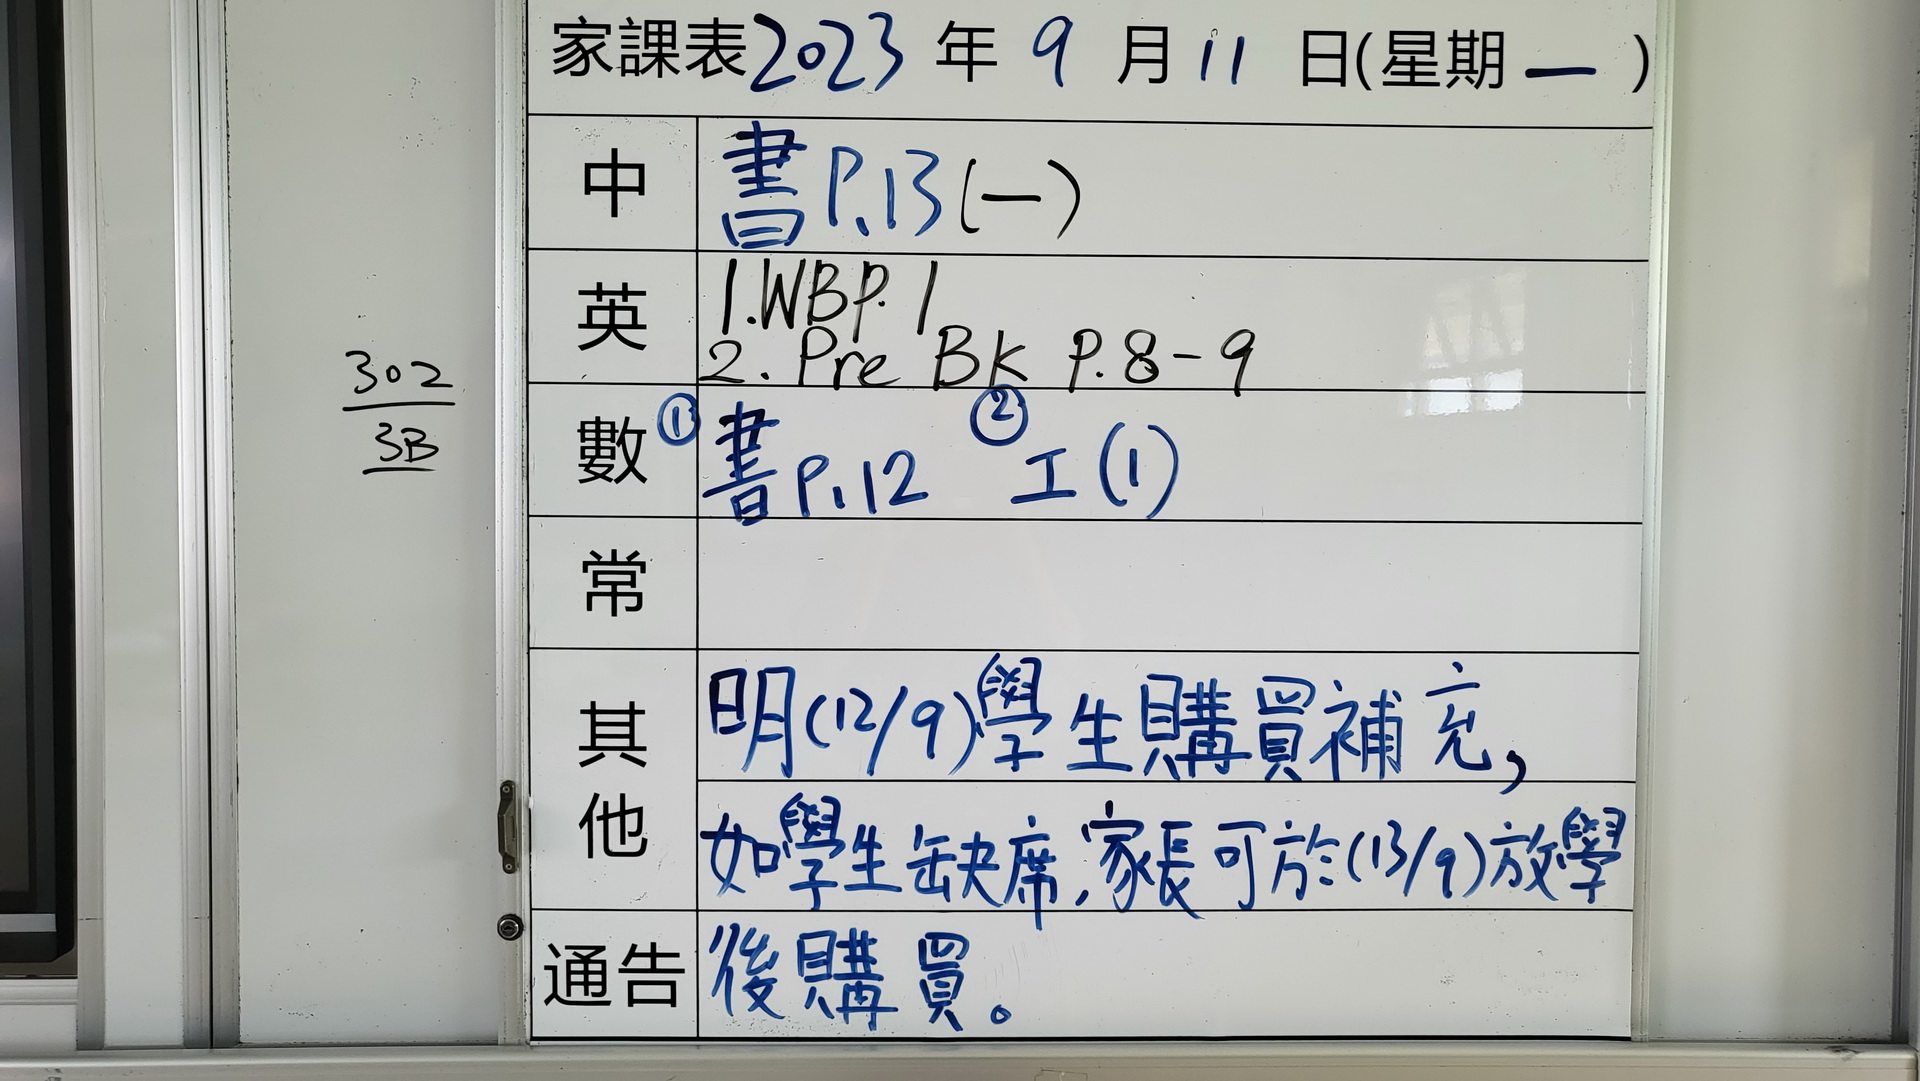 家課表2023年9月11日(星期一)
中 書P.13(一)
英 1.WBP.1
2. Pre BK P.8-9
數 ①書P.12 ②工(1)
常
其他 明(12/9)學生購買補充,
如學生缺席,家長可於(13/9)放學
通告 後購買。
302
3B